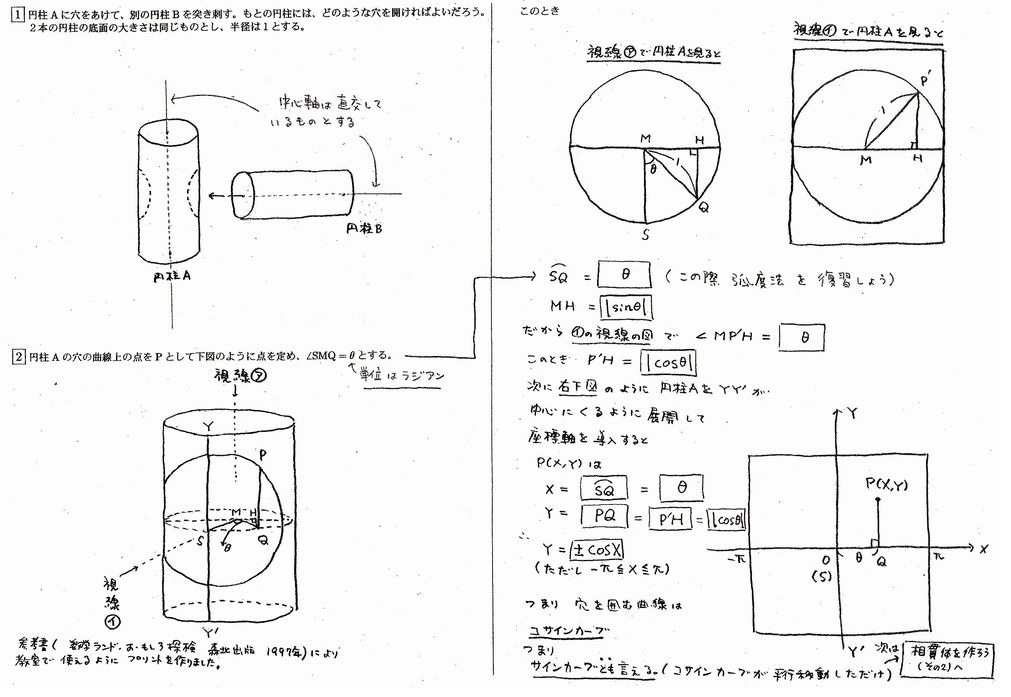 1 円柱Aに穴をあけて、別の円柱Bを突き刺す。もとの円柱には、どのような穴を開ければよいだろう。
2本の円柱の底面の大きさは同じものとし、半径は1とする。
中心軸は直交して
いるものとする
円柱B
円柱A
2 円柱Aの穴の曲線上の点をPとして下図のように点を定め、∠SMQ=θとする。
単位はラジアン
視線㋐
Y
P
M
H
S
θ
Q
視線㋑
Y'
参考書(数学ランド・おもしろ探検 森北出版 1997年)により
教室で使えるようにプリントを作りました。
このとき
視線㋐で円柱Aを見ると
M
H
θ
1
Q
S
視線㋑で円柱Aを見ると
P'
1
M
H
SQ = θ (この際 弧度法を復習しよう)
MH = |sinθ|
だから ㋑の視線の図で ∠MP'H = θ
このとき P'H = |cosθ|
次に右下図のように円柱AをYY'が
中心にくるように展開して
座標軸を導入すると
P(X,Y)は
X = SQ = θ
Y = PQ = P'H = |cosθ|
∴ Y = ±cosX
(ただし -π≦X≦π)
つまり 穴を囲む曲線は
コサインカーブ
つまり
サインカーブとも言える。(コサインカーブが平行移動しただけ)
Y
P(X,Y)
-π
O
(S)
θ
Q
π
X
Y'
次は 相貫体を作ろう
(その2)へ